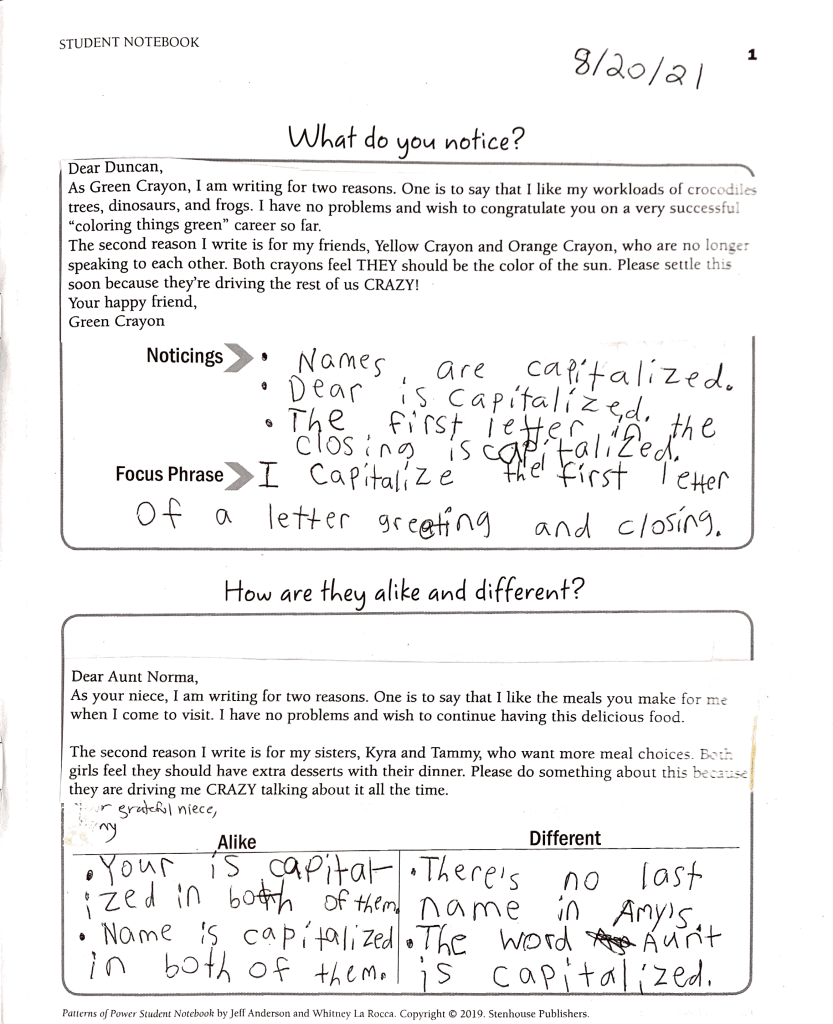 STUDENT NOTEBOOK
8/20/21
1
What do you notice?
Dear Duncan,
As Green Crayon, I am writing for two reasons. One is to say that I like my workloads of crocodiles
trees, dinosaurs, and frogs. I have no problems and wish to congratulate you on a very successful
“coloring things green” career so far.
The second reason I write is for my friends, Yellow Crayon and Orange Crayon, who are no longer
speaking to each other. Both crayons feel THEY should be the color of the sun. Please settle this
soon because they're driving the rest of us CRAZY!
Your happy friend,
Green Crayon
Noticings • Names are capitalized.
• Dear is capitalized.
• The first letter in the
closing is capitalized.
Focus Phrase I Capitalize the first letter
of a letter greeting and closing.
How are they alike and different?
Dear Aunt Norma,
As your niece, I am writing for two reasons. One is to say that I like the meals you make for me
when I come to visit. I have no problems and wish to continue having this delicious food.
The second reason I write is for my sisters, Kyra and Tammy, who want more meal choices. Both
girls feel they should have extra desserts with their dinner. Please do something about this because
they are driving me CRAZY talking about it all the time.
grateful niece,
Alike
• Your is capital-
ized in both of them.
• Name is capitalized
in both of them.
Different
• There's no last
name in Amy's.
• The word Aunt
is capitalized.
Patterns of Power Student Notebook by Jeff Anderson and Whitney La Rocca. Copyright © 2019. Stenhouse Publishers.